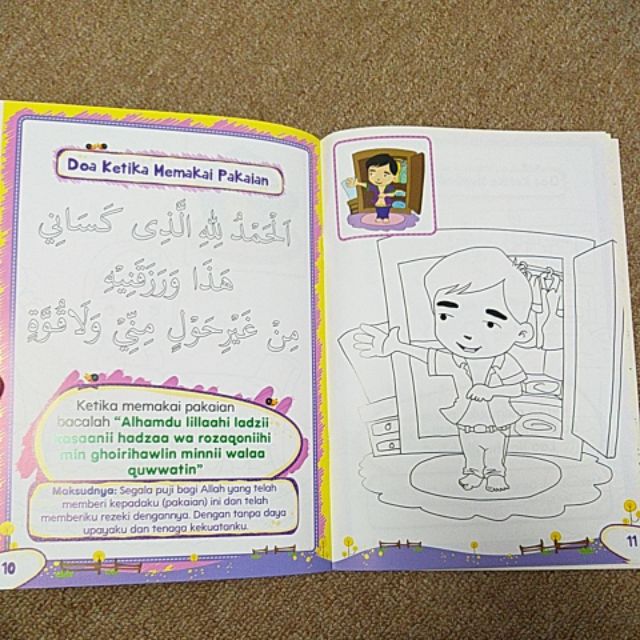 Doa Ketika Memakai Pakaian
اَلْحَمْدُ لِلّٰهِ الَّذِى كَسَانِي
هَذَا وَرَزَقَنِيْهِ
مِنْ غَيْرِ حَوْلٍ مِنِّيْ وَلَاقُوَّةٍ
Ketika memakai pakaian
bacalah "Alhamdu lillaahi ladzii
kasaanii hadzaa wa rozaqoniihi
min ghoirihawlin minnii walaa
quwwatin"
Maksudnya: Segala puji bagi Allah yang telah
memberi kepadaku (pakaian) ini dan telah
memberiku rezeki dengannya. Dengan tanpa daya
upayaku dan tenaga kekuatanku.
10
11